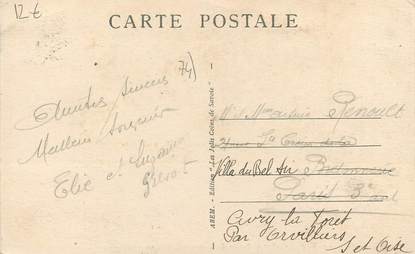 12€
CARTE POSTALE
74)
Amitiés sincères
Meilleur souvenir
Elie et Suzanne
ABEM. - Edition "Les Jolis Coins de Savoie"
Renoult
Villa du Bel Air
Paris 3e
Civry la Foret
Par Orvilliers
S et Oise